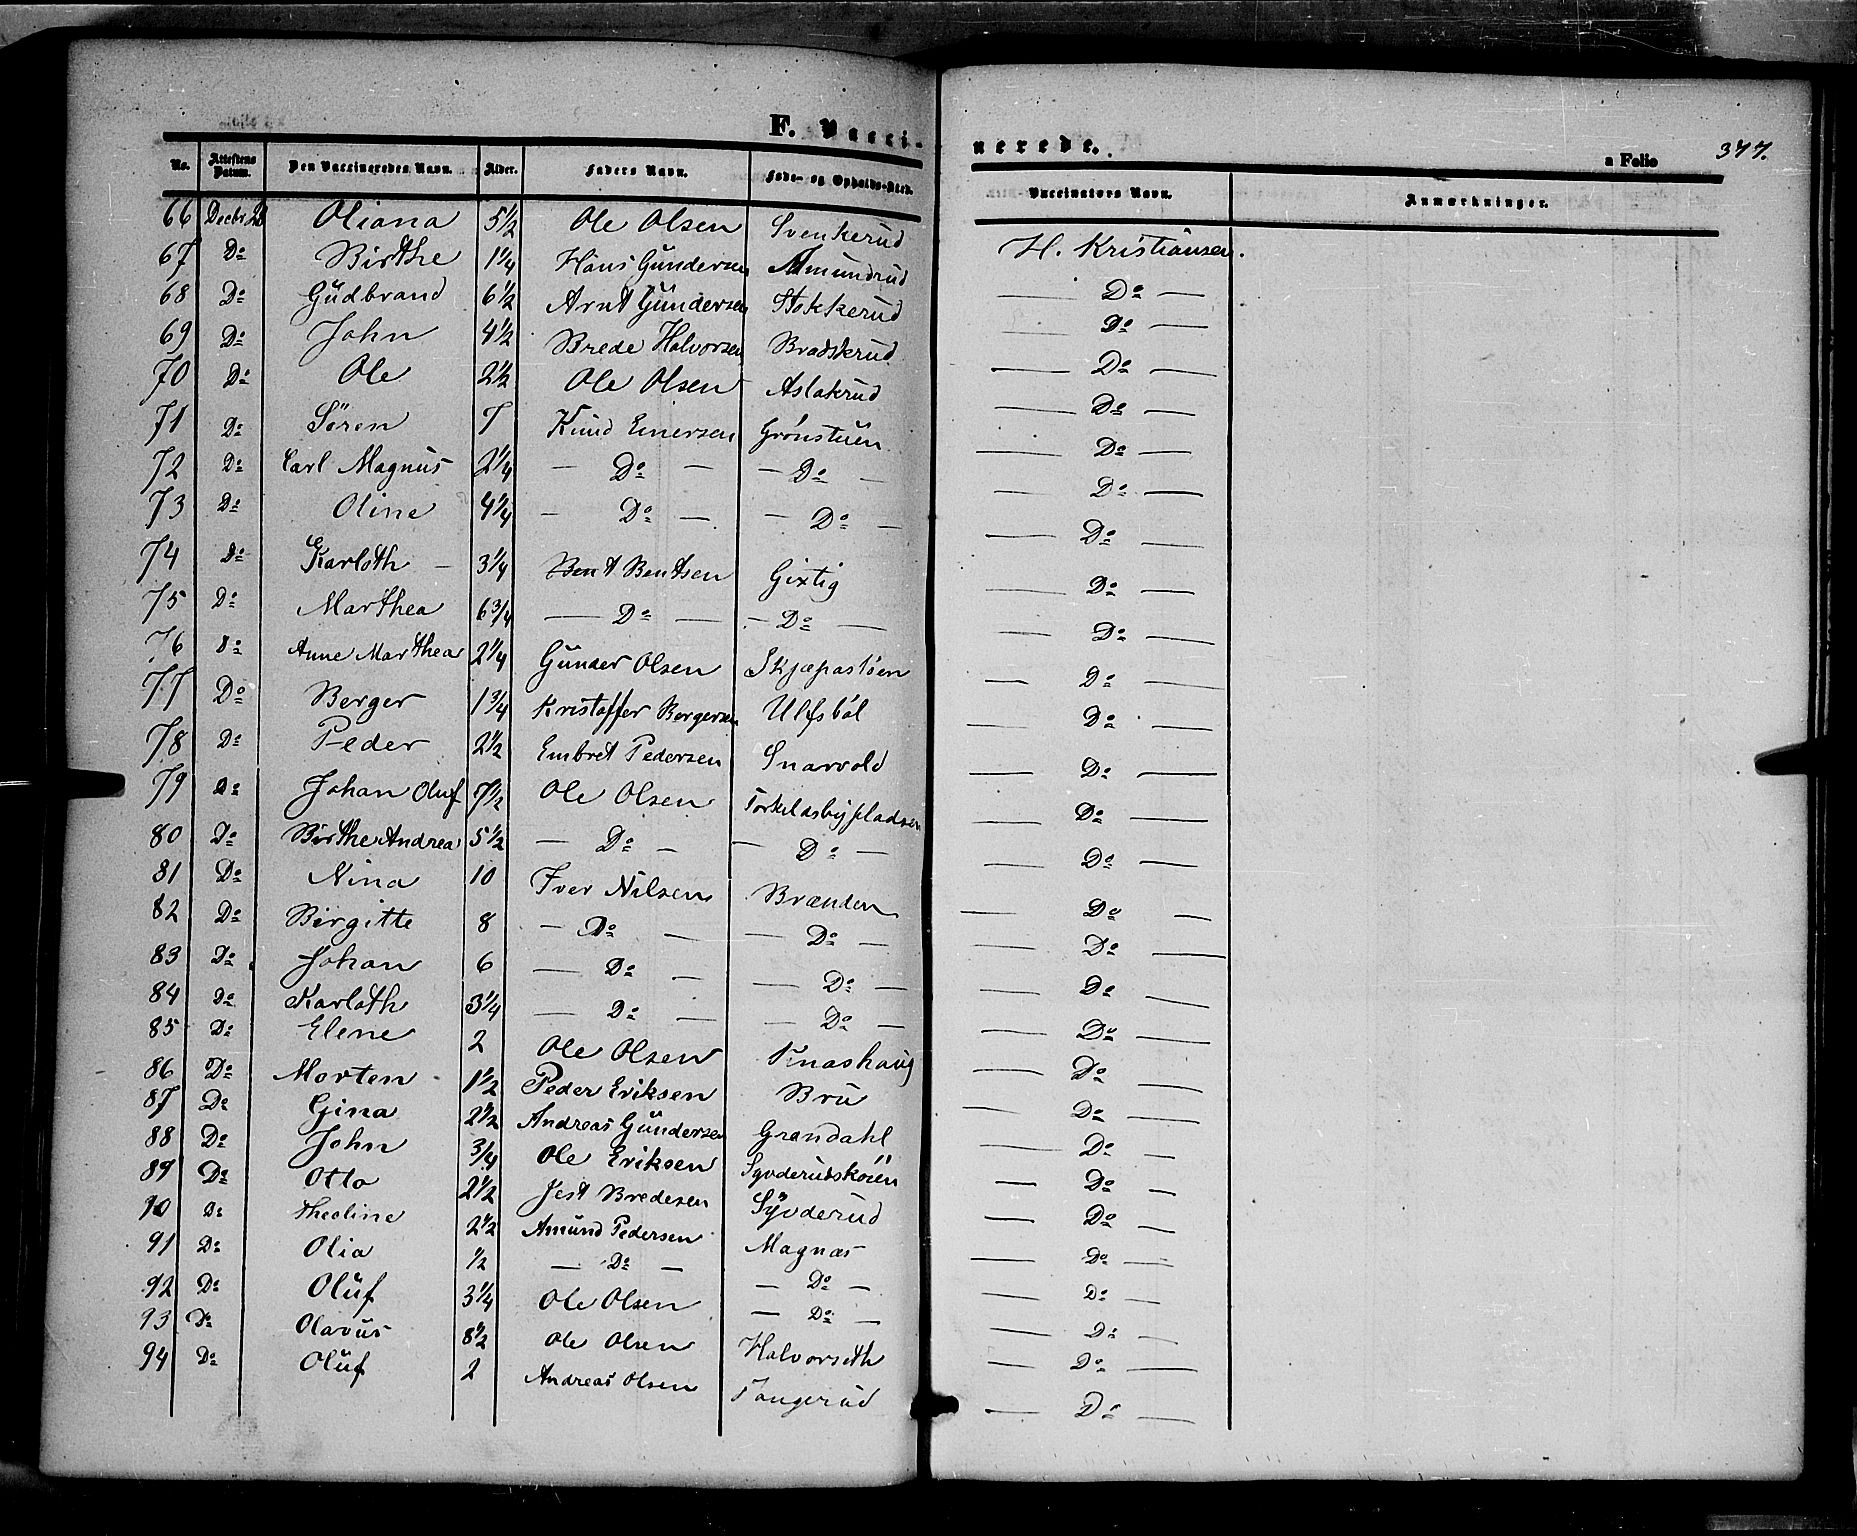 F. Vacci-nerede.
a Folio 377.
No. Attestens Datum. Den Vaccineredes Navn. Alder. Faders Navn. Føde- og Opholds-Sted. Vaccinators Navn. Anmærkninger.
66 Decbr Oliana 5½ Ole Olsen Svenkerud H. Kristiansen.
67 Do Birthe 1¼ Hans Gundersen Amundrud — Do —
68 Do Gudbrand 6½ Arnt Gundersen Stokkerud — Do —
69 Do John 4½ Brede Halvorsen Bradskrud — Do —
70 Do Ole 2½ Ole Olsen Aslakrud — Do —
71 Do Sören 7 Knud Einersen Grönstuen — Do —
72 Do Carl Magnus 2¼ — Do — — Do — — Do —
73 Do Oline 4¼ — Do — — Do — — Do —
74 Do Karloth — 3¼ Bent Bentsen Gixtig — Do —
75 Do Marthea 6¾ — Do — — Do — — Do —
76 Do Anne Marthea 2¼ Gunder Olsen Skjæpastöen — Do —
77 Do Berger 1¾ Kristoffer Bergersen Ulfsböl — Do —
78 Do Peder 2½ Embret Pedersen Snarvold — Do —
79 Do Johan Oluf 7½ Ole Olsen Torkeldsbypladsen — Do —
80 Do Birthe Andrea 5½ — Do — — Do — — Do —
81 Do Nina 10 Iver Nilsen Brænden — Do —
82 Do Birgitte 8 — Do — — Do — — Do —
83 Do Johan 6 — Do — — Do — — Do —
84 Do Karloth 3¼ — Do — — Do — — Do —
85 Do Elene 2 Ole Olsen Knashaug — Do —
86 Do Morten 1½ Peder Eriksen Bru — Do —
87 Do Gina 2½ Andreas Gundersen Grøndahl — Do —
88 Do John ¾ Ole Eriksen Syverudskoien — Do —
89 Do Otto 2½ Jest Bredesen Syverud — Do —
90 Do Theoline 2½ Amund Pedersen Magnæs — Do —
91 Do Olia ½ — Do — — Do — — Do —
92 Do Oluf 3¼ Ole Olsen — Do — — Do —
93 Do Olavus 8½ Ole Olsen Halvorseth — Do —
94 Do Oluf 2 Andreas Olsen Tangerud — Do —